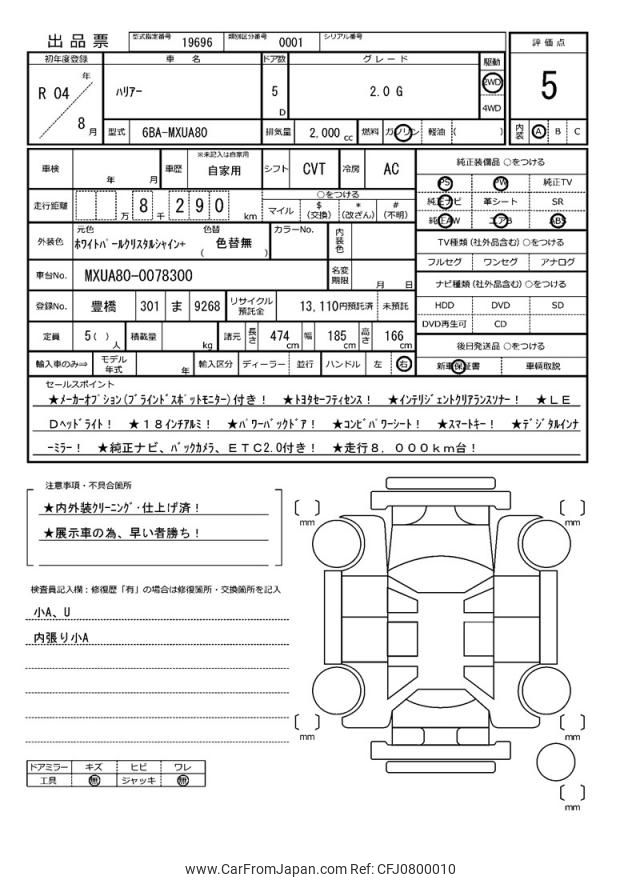 出品票 型式指定番号 19696 類別区分番号 0001 シリアル番号
評価点
初年度登録 車名 ドア数 グレード 駆動
R 04 年 8 月 ハリアー 5 D 2.0 G 2WD 4WD
5
型式 6BA-MXUA80 排気量 2,000 cc 燃料 ガソリン 軽油 ( )
内装 A B C
車検 年 月 車歴 ※未記入は自家用 自家用 シフト CVT 冷房 AC
純正装備品 ○をつける
PS PW 純正TV
走行距離 万 8 千 2 9 0 km ○をつける
マイル $(交換) *(改ざん) #(不明)
純正ナビ 革シート SR
純正AW エアB ABS
外装色 元色 ホワイトパールクリスタルシャイン+ 色替 ( 色替無 ) カラーNo. 内装色
TV種類(社外品含む)○をつける
フルセグ ワンセグ アナログ
車台No. MXUA80-0078300 名変期限 月 日
ナビ種類(社外品含む)○をつける
登録No. 豊橋 301 ま 9268 リサイクル預託金 13,110円預託済 未預託
HDD DVD SD
DVD再生可 CD
定員 5( )人 積載量 kg 諸元 長さ 474 cm 幅 185 cm 高さ 166 cm
後日発送品 ○をつける
輸入車のみ⇒ モデル年式 年 輸入区分 ディーラー 並行 ハンドル 左 右
新車保証書 車輌取説
セールスポイント
★メーカーオプション(ブラインドスポットモニター)付き! ★トヨタセーフティセンス! ★インテリジェントクリアランスソナー! ★LE
Dヘッドライト! ★18インチアルミ! ★パワーバックドア! ★コンビパワーシート! ★スマートキー! ★デジタルインナ
ーミラー! ★純正ナビ、バックカメラ、ETC2.0付き! ★走行8,000km台!
注意事項・不具合箇所
★内外装クリーニング・仕上げ済!
★展示車の為、早い者勝ち!
検査員記入欄:修復歴「有」の場合は修復箇所・交換箇所を記入
小A、U
内張り小A
ドアミラー キズ ヒビ ワレ
工具 無 ジャッキ 無
mm
mm
mm
mm
mm
www.CarFromJapan.com Ref: CFJ0800010